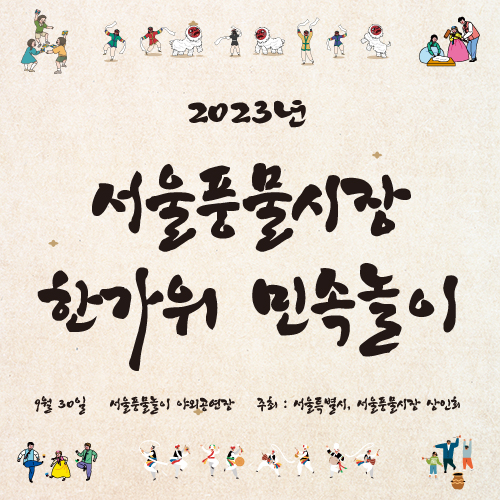 2023년
서울풍물시장
한가위 민속놀이
9월 30일 서울풍물놀이 야외공연장 주최 : 서울특별시, 서울풍물시장 상인회